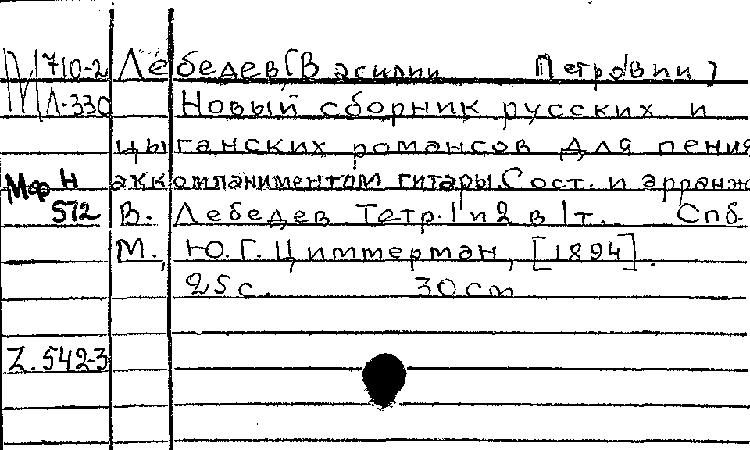 М 710-2 Лебедев [Василий Петрович]
Л-330 Новый сборник русских и
цыганских романсов для пения
Мф Н аккомпаниментом гитары. Сост. и арранж
572 В. Лебедев. Тетр. 1 и 2 в 1 т. Спб-
М., Ю.Г. Циммерман, [1894].
25 с. 30 cm
Z.542-3